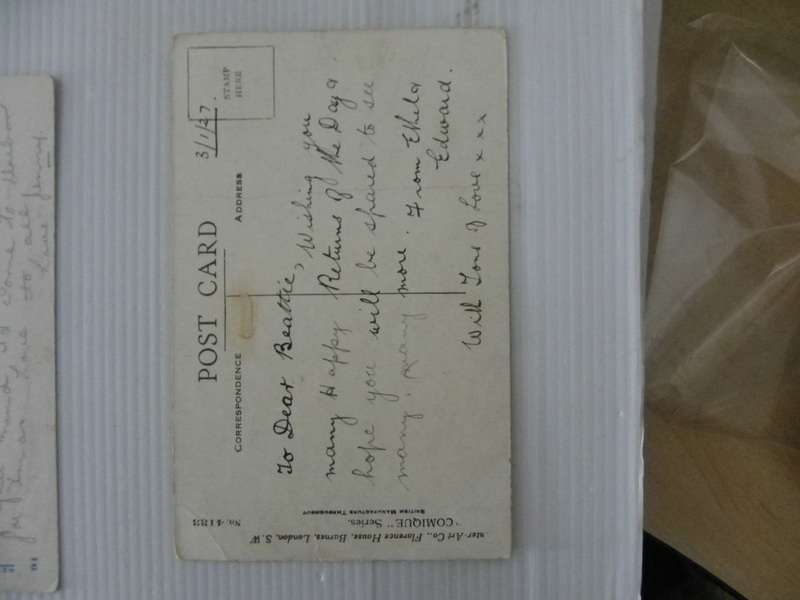 POST CARD
CORRESPONDENCE
ADDRESS
STAMP
HERE
3/1/27.
To Dear Beattie, Wishing you
many Happy Returns of the Day &
hope you will be spared to see
many, many more. From Ethel &
Edward.
With Tons of Love x x x
No. 4183
"COMIQUE" Series.
BRITISH MANUFACTURE THROUGHOUT
nter-Art Co., Florence House, Barnes, London, S.W
come to
love to all